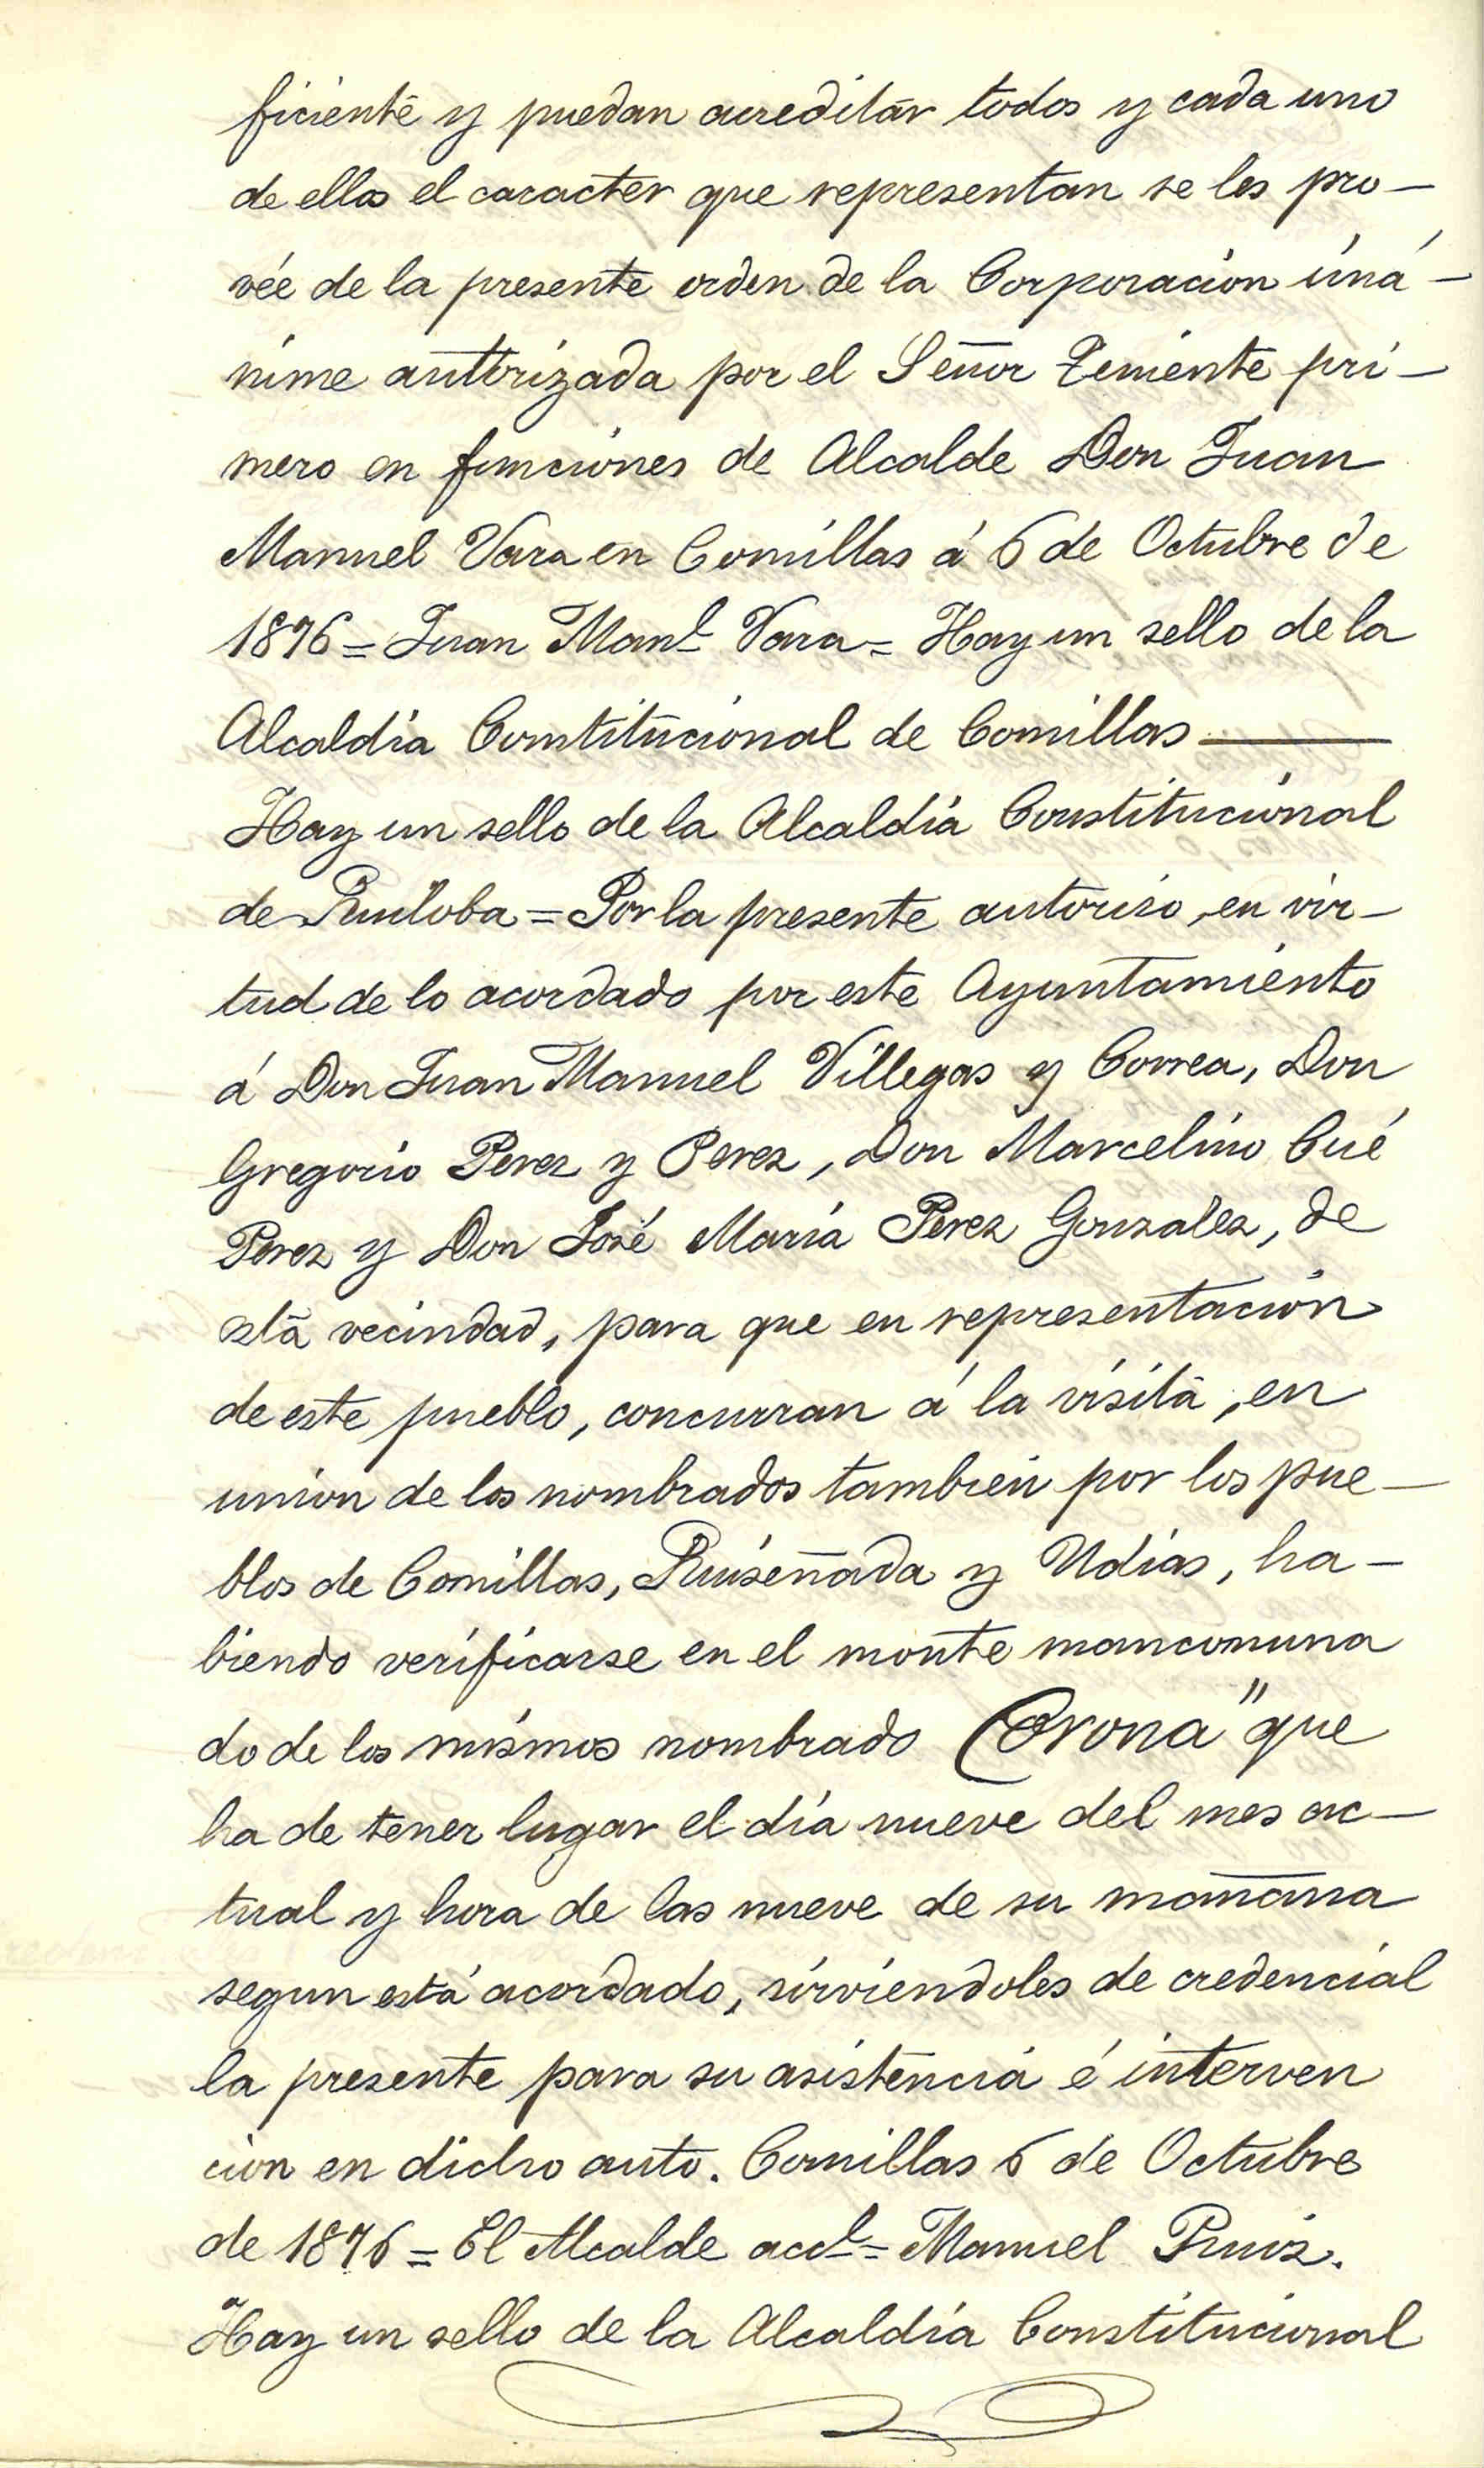 ficiente y puedan acreditar todos y cada uno
de ellos el caracter que representan se les pro-
vée de la presente orden de la Corporacion úná-
nime autorizada por el Señor Teniente pri-
mero en funciones de Alcalde Don Juan
Manuel Vara en Comillas á 6 de Octubre de
1876 = Juan Manl Vara = Hay un sello de la
Alcaldía Constitucional de Comillas
Hay un sello de la Alcaldía Constitucional
de Ruiloba = Por la presente autoriso, en vir-
tud de lo acordado por este Ayuntamiento
á Don Juan Manuel Villegas y Correa, Don
Gregorio Perez y Perez, Don Marcelino Cué
Perez y Don José María Perez Gonzalez, de
esta vecindad, para que en representacion
de este pueblo, concurran á la visita, en
union de los nombrados tambien por los pue-
blos de Comillas, Ruiseñada y Udías, ha-
biendo verificarse en el monte mancomuna
do de los mismos nombrado Corona" que
ha de tener lugar el día nueve del mes ac-
tual y hora de las nueve de su mañana
segun está acordado, sirviendoles de credencial
la presente para su asistencia é interven
cion en dicho auto. Comillas 6 de Octubre
de 1876 = El Alcalde accl = Manuel Ruiz.
Hay un sello de la Alcaldía Constitucional